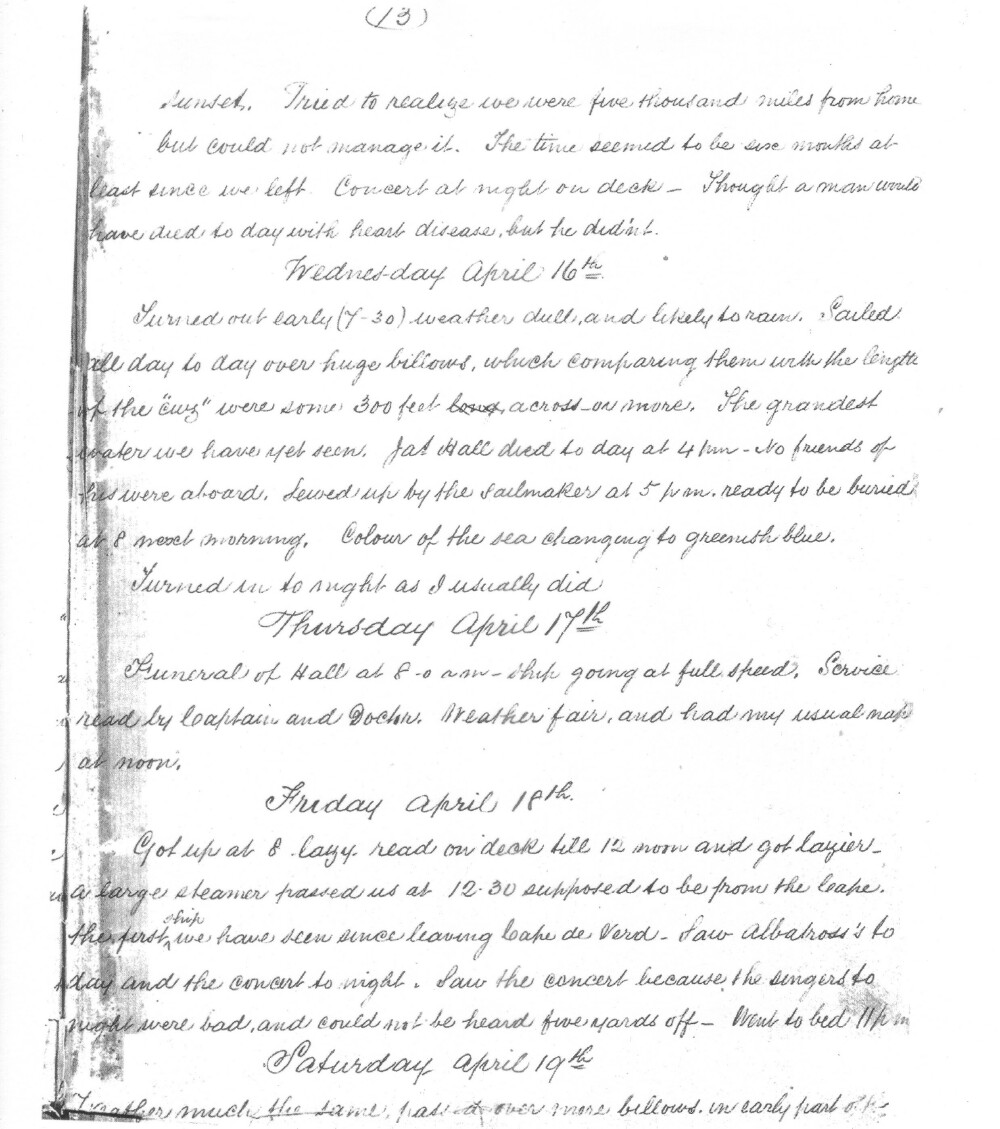 (13)
sunset. Tried to realize we were five thousand miles from home
but could not manage it. The time seemed to be six months at
least since we left. Concert at night on deck – Thought a man would
have died to day with heart disease, but he did'nt.
Wednesday April 16th
Turned out early (7-30) weather dull, and likely to rain. Sailed
all day to day over huge billows, which comparing them with the length
of the were some 300 feet long, across or more. The grandest
water we have yet seen. Jas Hall died to day at 4 pm – No friends of
his were aboard. Sewed up by the Sailmaker at 5 p m. ready to be buried
at 8 next morning. Colour of the sea changing to greenish blue.
Turned in to night as I usually did
Thursday April 17th
Funeral of Hall at 8-0 a m – ship going at full speed. Service
read by Captain and Doctor. Weather fair, and had my usual nap
at noon.
Friday April 18th.
Got up at 8 lazy. read on deck till 12 noon and got lazier –
A large steamer passed us at 12-30 supposed to be from the Cape.
the first ship we have seen since leaving Cape de Verd – Saw Albatross's to
day and the concert to night. Saw the concert because the singers to
night were bad, and could not be heard five yards off – Went to bed 11 p m
Saturday April 19th
Weather much the same, passed over more billows. in early part of